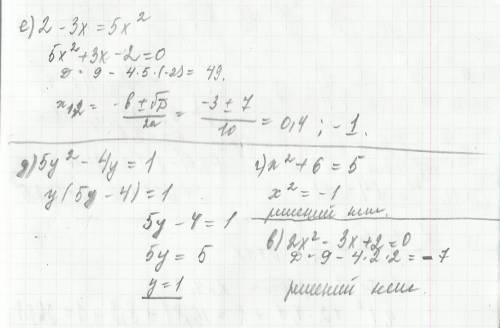 е) 2 - 3x = 5x²
5x² + 3x - 2 = 0
D = 9 - 4·5·(-2) = 49.
x₁,₂ = (-b ± √D)/2a = (-3 ± 7)/10 = 0,4 ; -1.
д) 5y² - 4y = 1
y(5y - 4) = 1
5y - 4 = 1
5y = 5
y = 1
г) x² + 6 = 5
x² = -1
решений нет.
в) 2x² - 3x + 2 = 0
D = 9 - 4·2·2 = -7
решений нет.